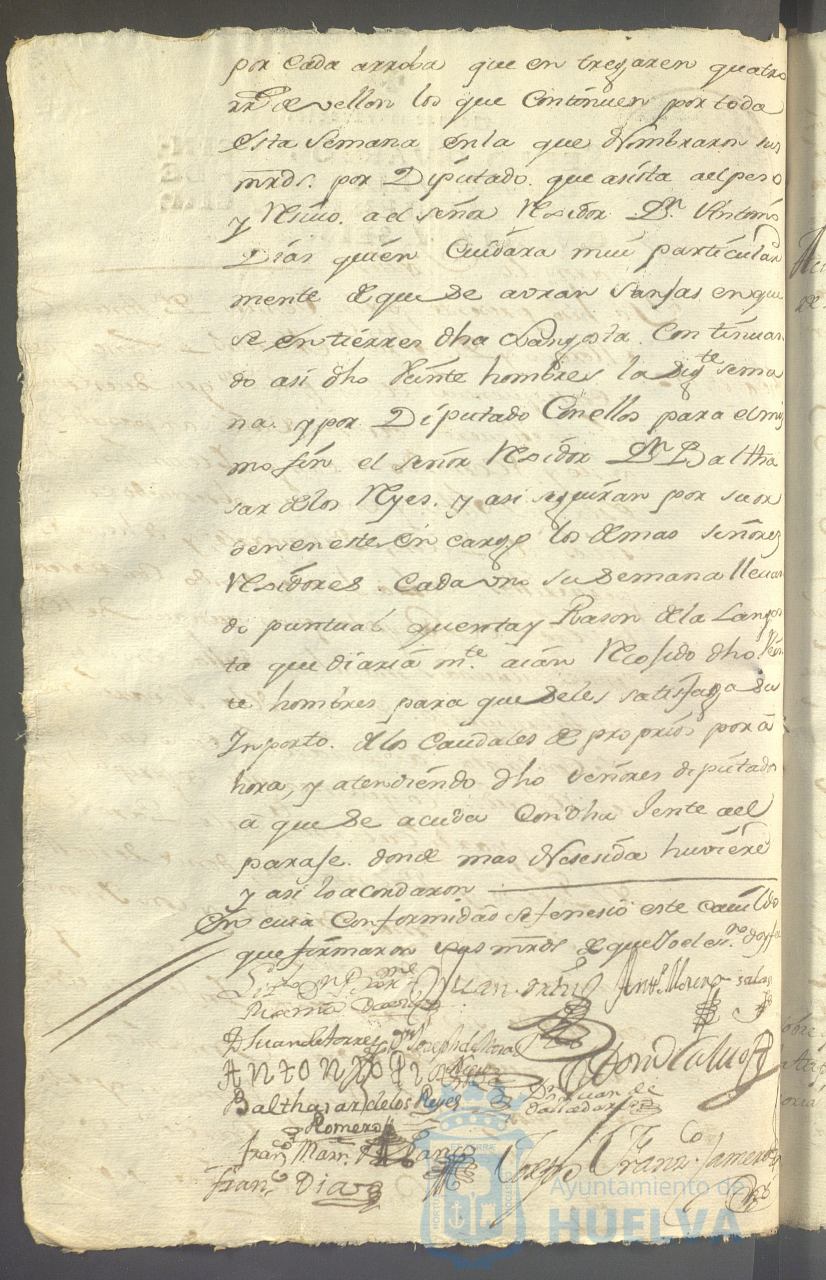 por cada arroba que entregaren quatro
rrs. de vellon los que Continuen por toda
esta semana en la que Nombraron sus
mrds. por Diputado que asista a el peso
y Resiuo a el señor Residor Dn. Antonio
Dias quien Cuidara mui particular
mente de que se avran sanjas en que
se entierres dha Langosta Continuan
do asi dho Veinte hombres la sigte sema
na y por Diputado Con ellos para el mis
mo fin el señor Residor Dn. Baltha
sar de los Reyes. y asi seguiran por su or
den en este en cargo los demas señores
Residores Cada vno su semana lleuan
do puntual quenta y Rason de la Langos
ta que diariamte. aian Recosido dho Vein
te hombres para que se les satisfaga su
Inporto de los Caudales de proprios por a
hora, y atendiendo dho señores diputados
a que se acuda Con dha Jente a el
paraje donde mas Nesesida huviere
y asi lo acordaron
En cuia Conformidad se fenesio este Cauildo
que firmaron sus mrds de que Yo el essno. doy fe
Juan Antt. Moreno
D Juan de torres Joseph de
Antonio
Balthasar de los Reyes Dn Juan de
Romero
Franco Marn.
Franco Dias Franco Romero
Ayuntamiento de
HUELVA